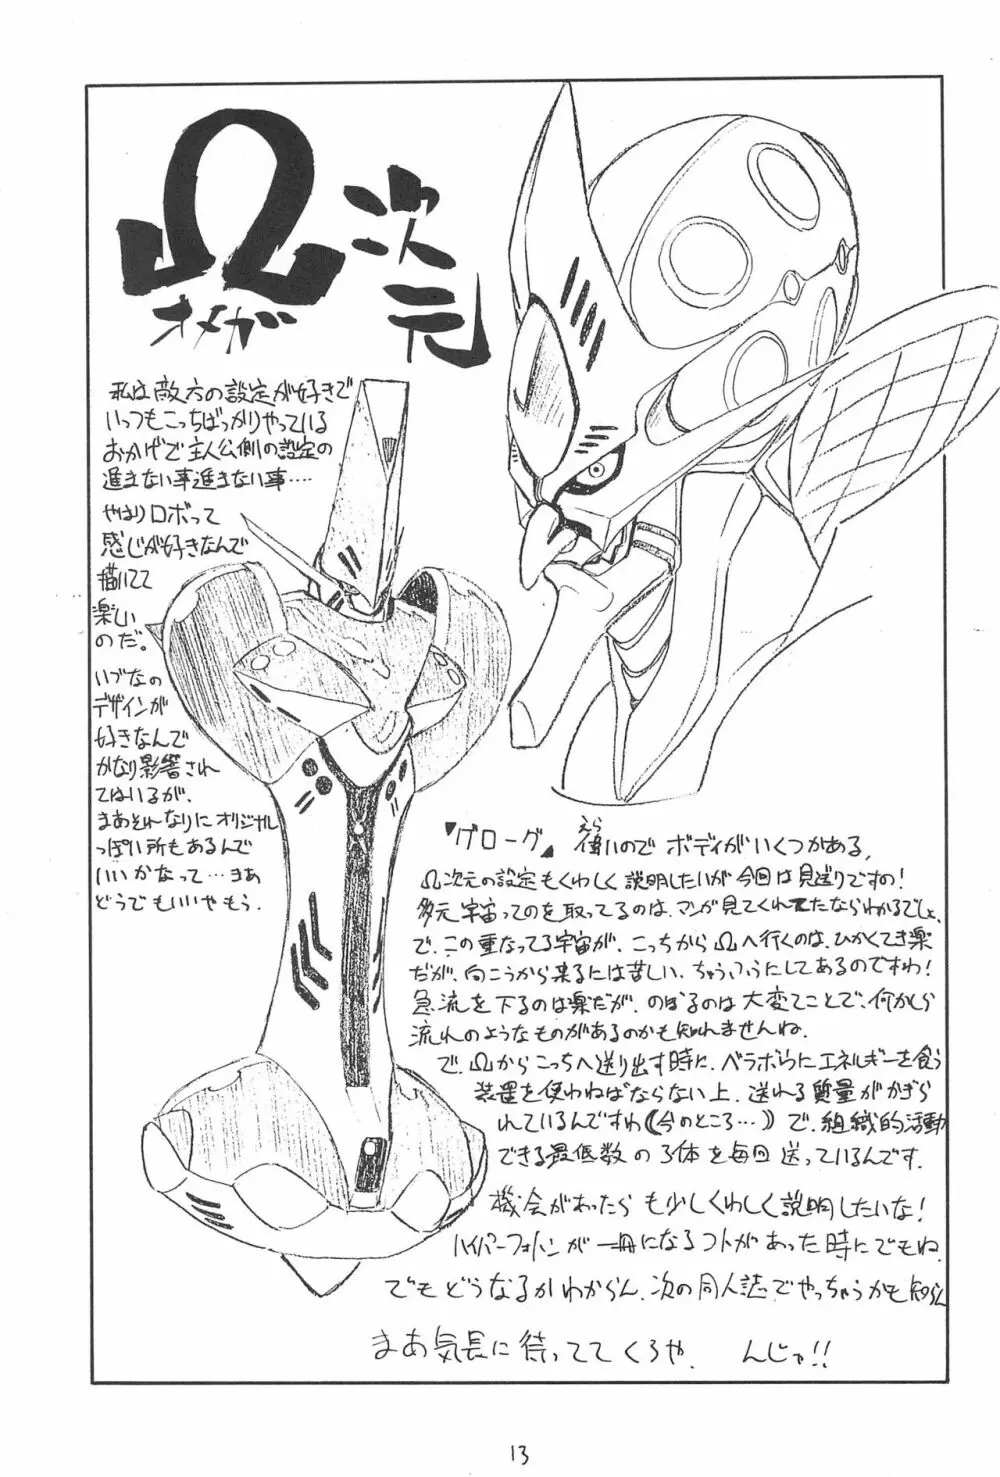 Ω次元
オメガ
私は敵方の設定が好きで
いつもこっちばっかりやっている
おかげで主人公側の設定の
進まない事進まない事‥‥
やはりロボって
感じが好きなんで
描いてて
楽しい
のだ。
いづなの
デザインが
好きなんで
かなり影響され
てはいるが、
まあそれなりにオリジナル
っぽい所もあるんで
いいかなって…まあ
どうでもいいやもう.
『グローグ』えら偉いのでボディがいくつかある,
Ω次元の設定もくわしく説明したいが今回は見送りですの!
多元宇宙ってのを取ってるのは、マンガ見てくれてたならわかるでしょ、
で、この重なってる宇宙が、こっちからΩへ行くのは、ひかくてき楽
だが、向こうから来るには苦しい、ちゅうふうにしてあるのですわ!
急流を下るのは楽だが、のぼるのは大変てことで、何かしら
流れのようなものがあるのかも知れませんね.
で、Ωからこっちへ送り出す時に、ベラボウにエネルギーを食う
装置を使わねばならない上、送れる質量がかぎら
れているんですわ(今のところ…)で、組織的活動
できる最低数の3体を毎回送っているんです.
機会があったらも少しくわしく説明したいな!
ハイパーフォトンが一冊になるコトがあった時にでもね.
でもどうなるかわからん、次の同人誌でやっちゃうかも知らん
まあ気長に待っててくろや. んじゃ!!
13